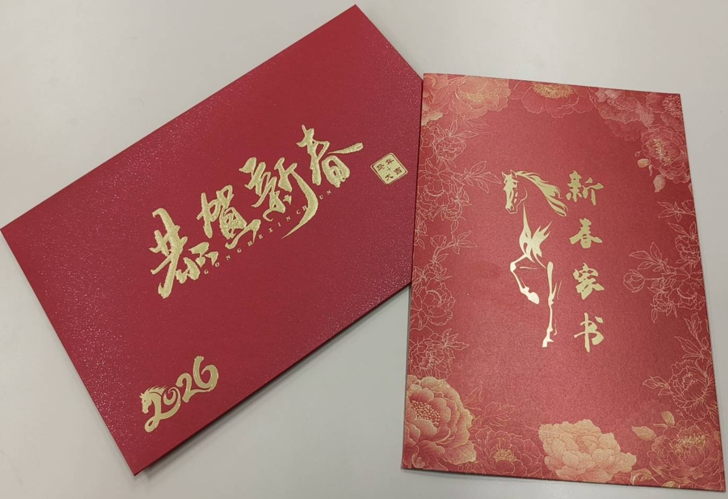 恭贺新春
GONGHEXINCHUN
2026
新春家书